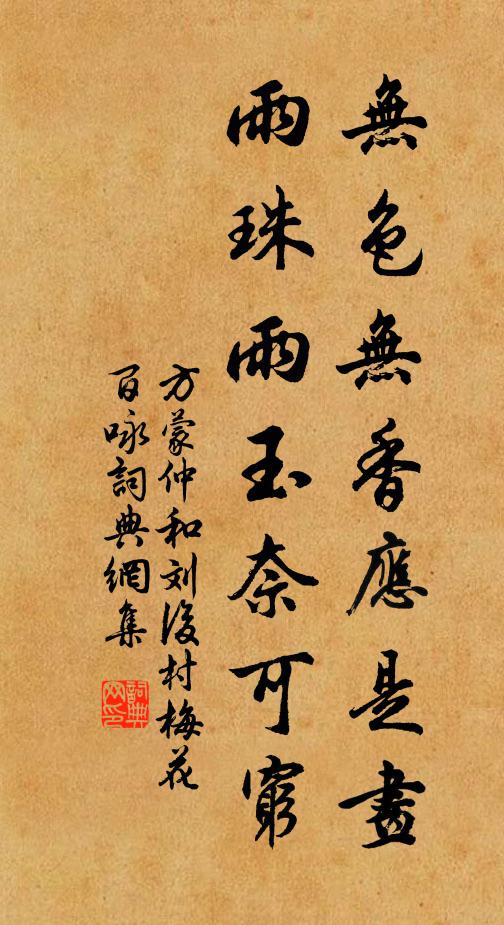 無色無香應是畫
雨珠雨玉奈可窮
方蒙仲和刘後村梅花
百咏詞典網集
詞典
网印